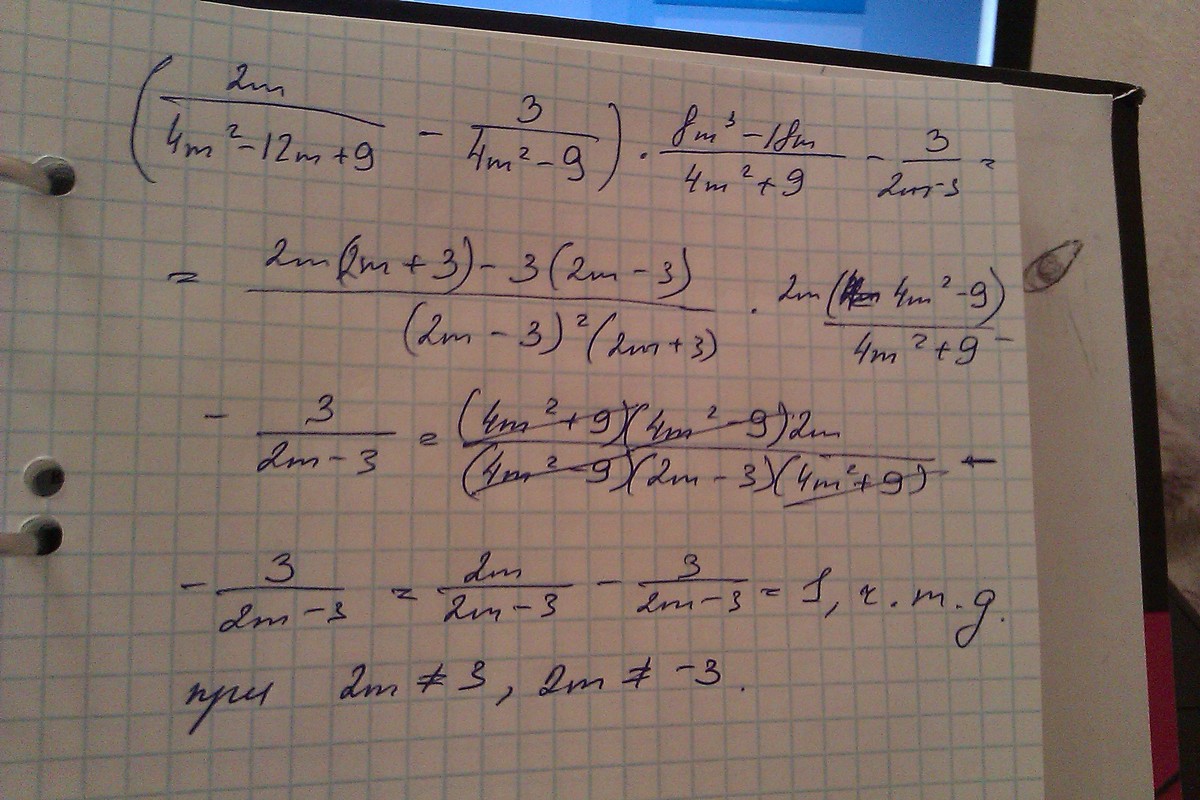 (2m/(4m² - 12m + 9) - 3/(4m² - 9)) · (8m³ - 18m)/(4m² + 9) - 3/(2m - 3) =
= (2m(2m + 3) - 3(2m - 3))/((2m - 3)²(2m + 3)) · 2m(4m² - 9)/(4m² + 9) -
- 3/(2m - 3) = ((4m² + 9)(4m² - 9)2m)/((4m² - 9)(2m - 3)(4m² + 9)) -
- 3/(2m - 3) = 2m/(2m - 3) - 3/(2m - 3) = 1, ч.т.д.
при 2m ≠ 3, 2m ≠ -3.